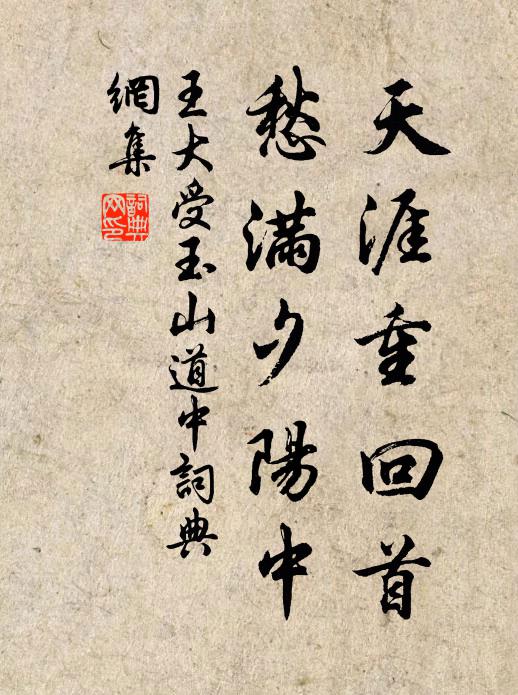 天涯重回首
愁滿夕陽中
王大受玉山道中詞典
網集
詞典網印